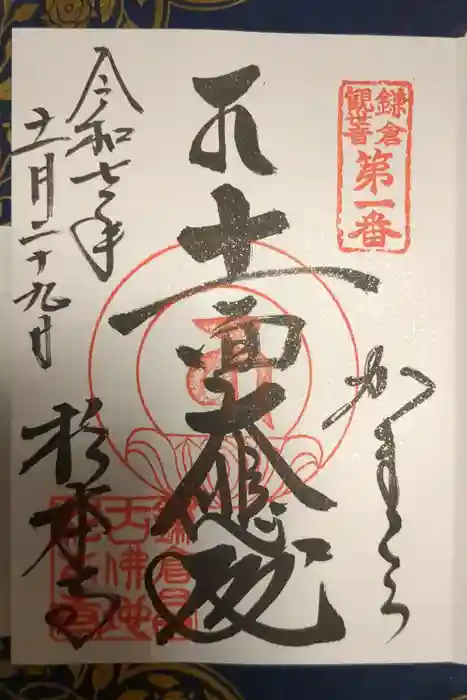 鎌倉
観世音
第一番
かまくら
十一面大悲殿
令和七年
十一月二十九日
杉本寺